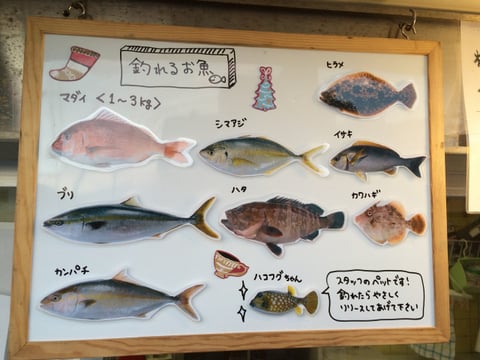 釣れるお魚
ヒラメ
マダイ <1～3kg>
シマアジ
イサキ
ブリ
ハタ
カワハギ
カンパチ
ハコフグちゃん
スタッフのペットです!
釣れたらやさしく
リリースしてあげて下さい